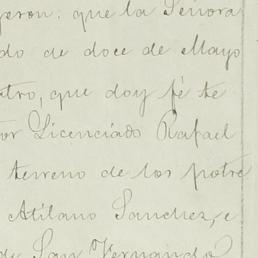 geron: que la Señora
do de doce de Mayo
atro, que doy fé te
or Licenciado Rafael
terreno de los potre
Atilano Sanchez, e
de San Fernando